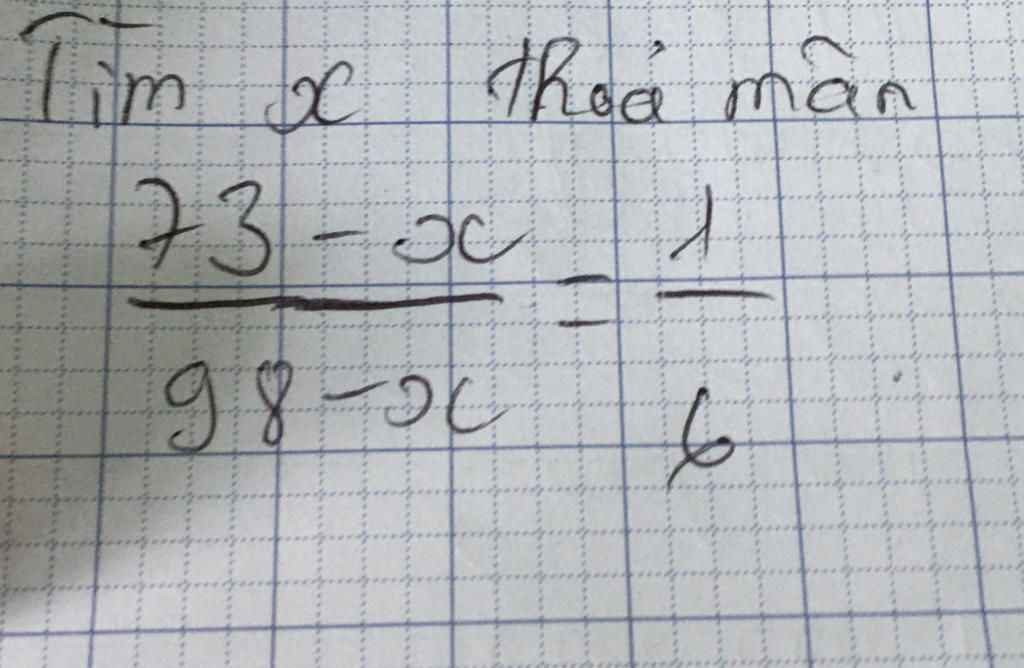 Tìm x thoả mãn
73 - x / 98 - x = 1 / 6